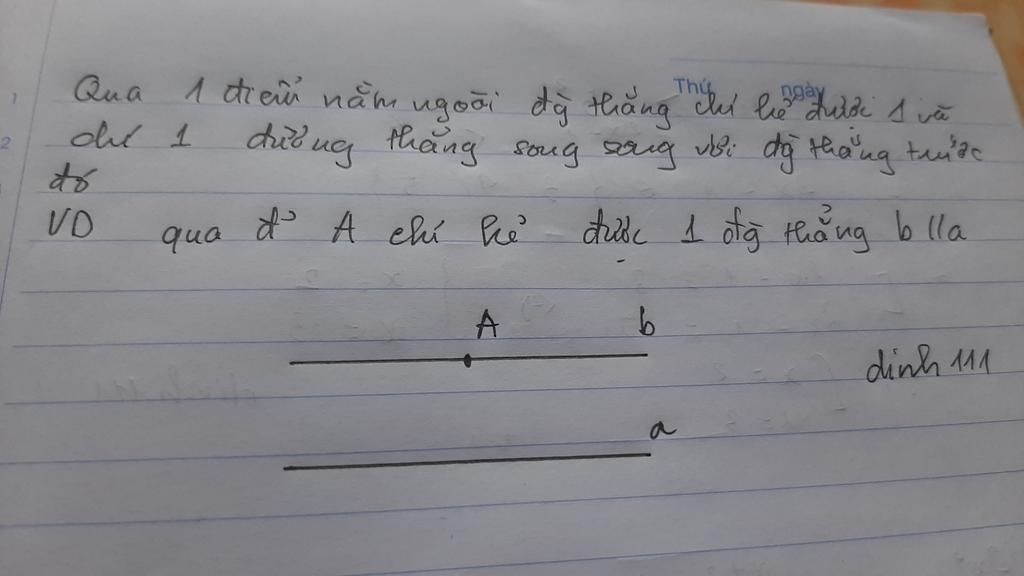 Thứ ngày
1
Qua 1 điểm nằm ngoài đg thẳng chỉ kẻ được 1 và
2
chỉ 1 đường thẳng song song với đg thẳng trước
đó
VD qua đ' A chỉ kẻ được 1 đg thẳng b//a
A b
dinh 111
a